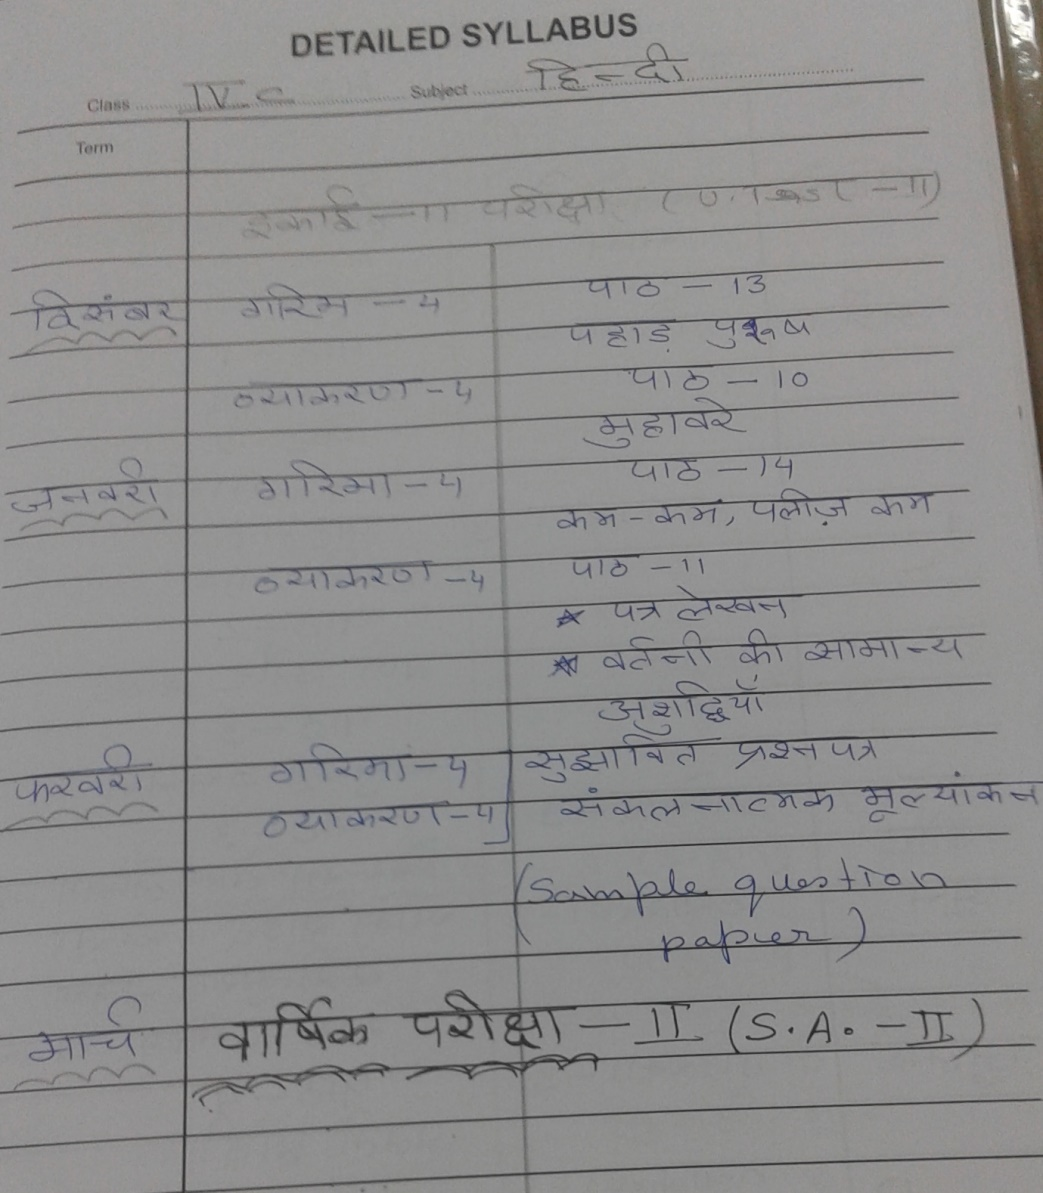 DETAILED SYLLABUS
Class IV C Subject हिन्दी
Term
इकाई-II परीक्षा (U.Test-II)
दिसंबर गरिम-4 पाठ-13
पहाड़ पुरूष
व्याकरण-4 पाठ-10
मुहावरे
जनवरी गरिमा-4 पाठ-14
कम-कम, पलीज़ कम
व्याकरण-4 पाठ-11
* पत्र लेखन
* वर्तनी की सामान्य
अशुद्धियाँ
फरवरी गरिमा-4 सुझावित प्रश्न पत्र
व्याकरण-4 संकलनात्मक मूल्यांकन
(Sample question
paper)
मार्च वार्षिक परीक्षा-II (S.A.-II)